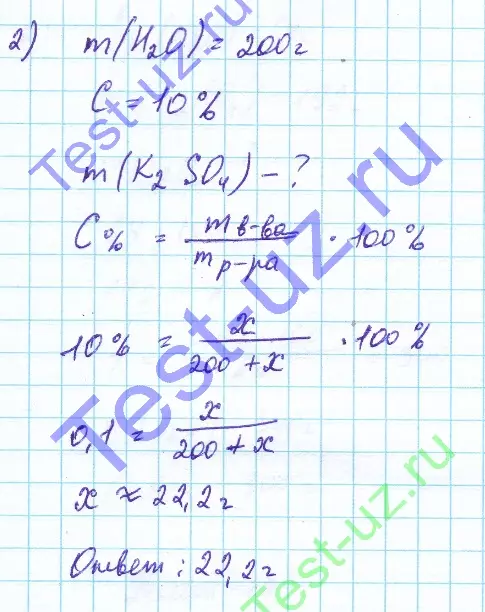 2) m(H₂O) = 200г
C = 10%
m(K₂SO₄) - ?
C% = m в-ва / m р-ра · 100%
10% = x / 200 + x · 100%
0,1 = x / 200 + x
x ≈ 22,2г
Ответ: 22,2г
Test-uz.ru
Test-uz.ru
Test-uz.ru